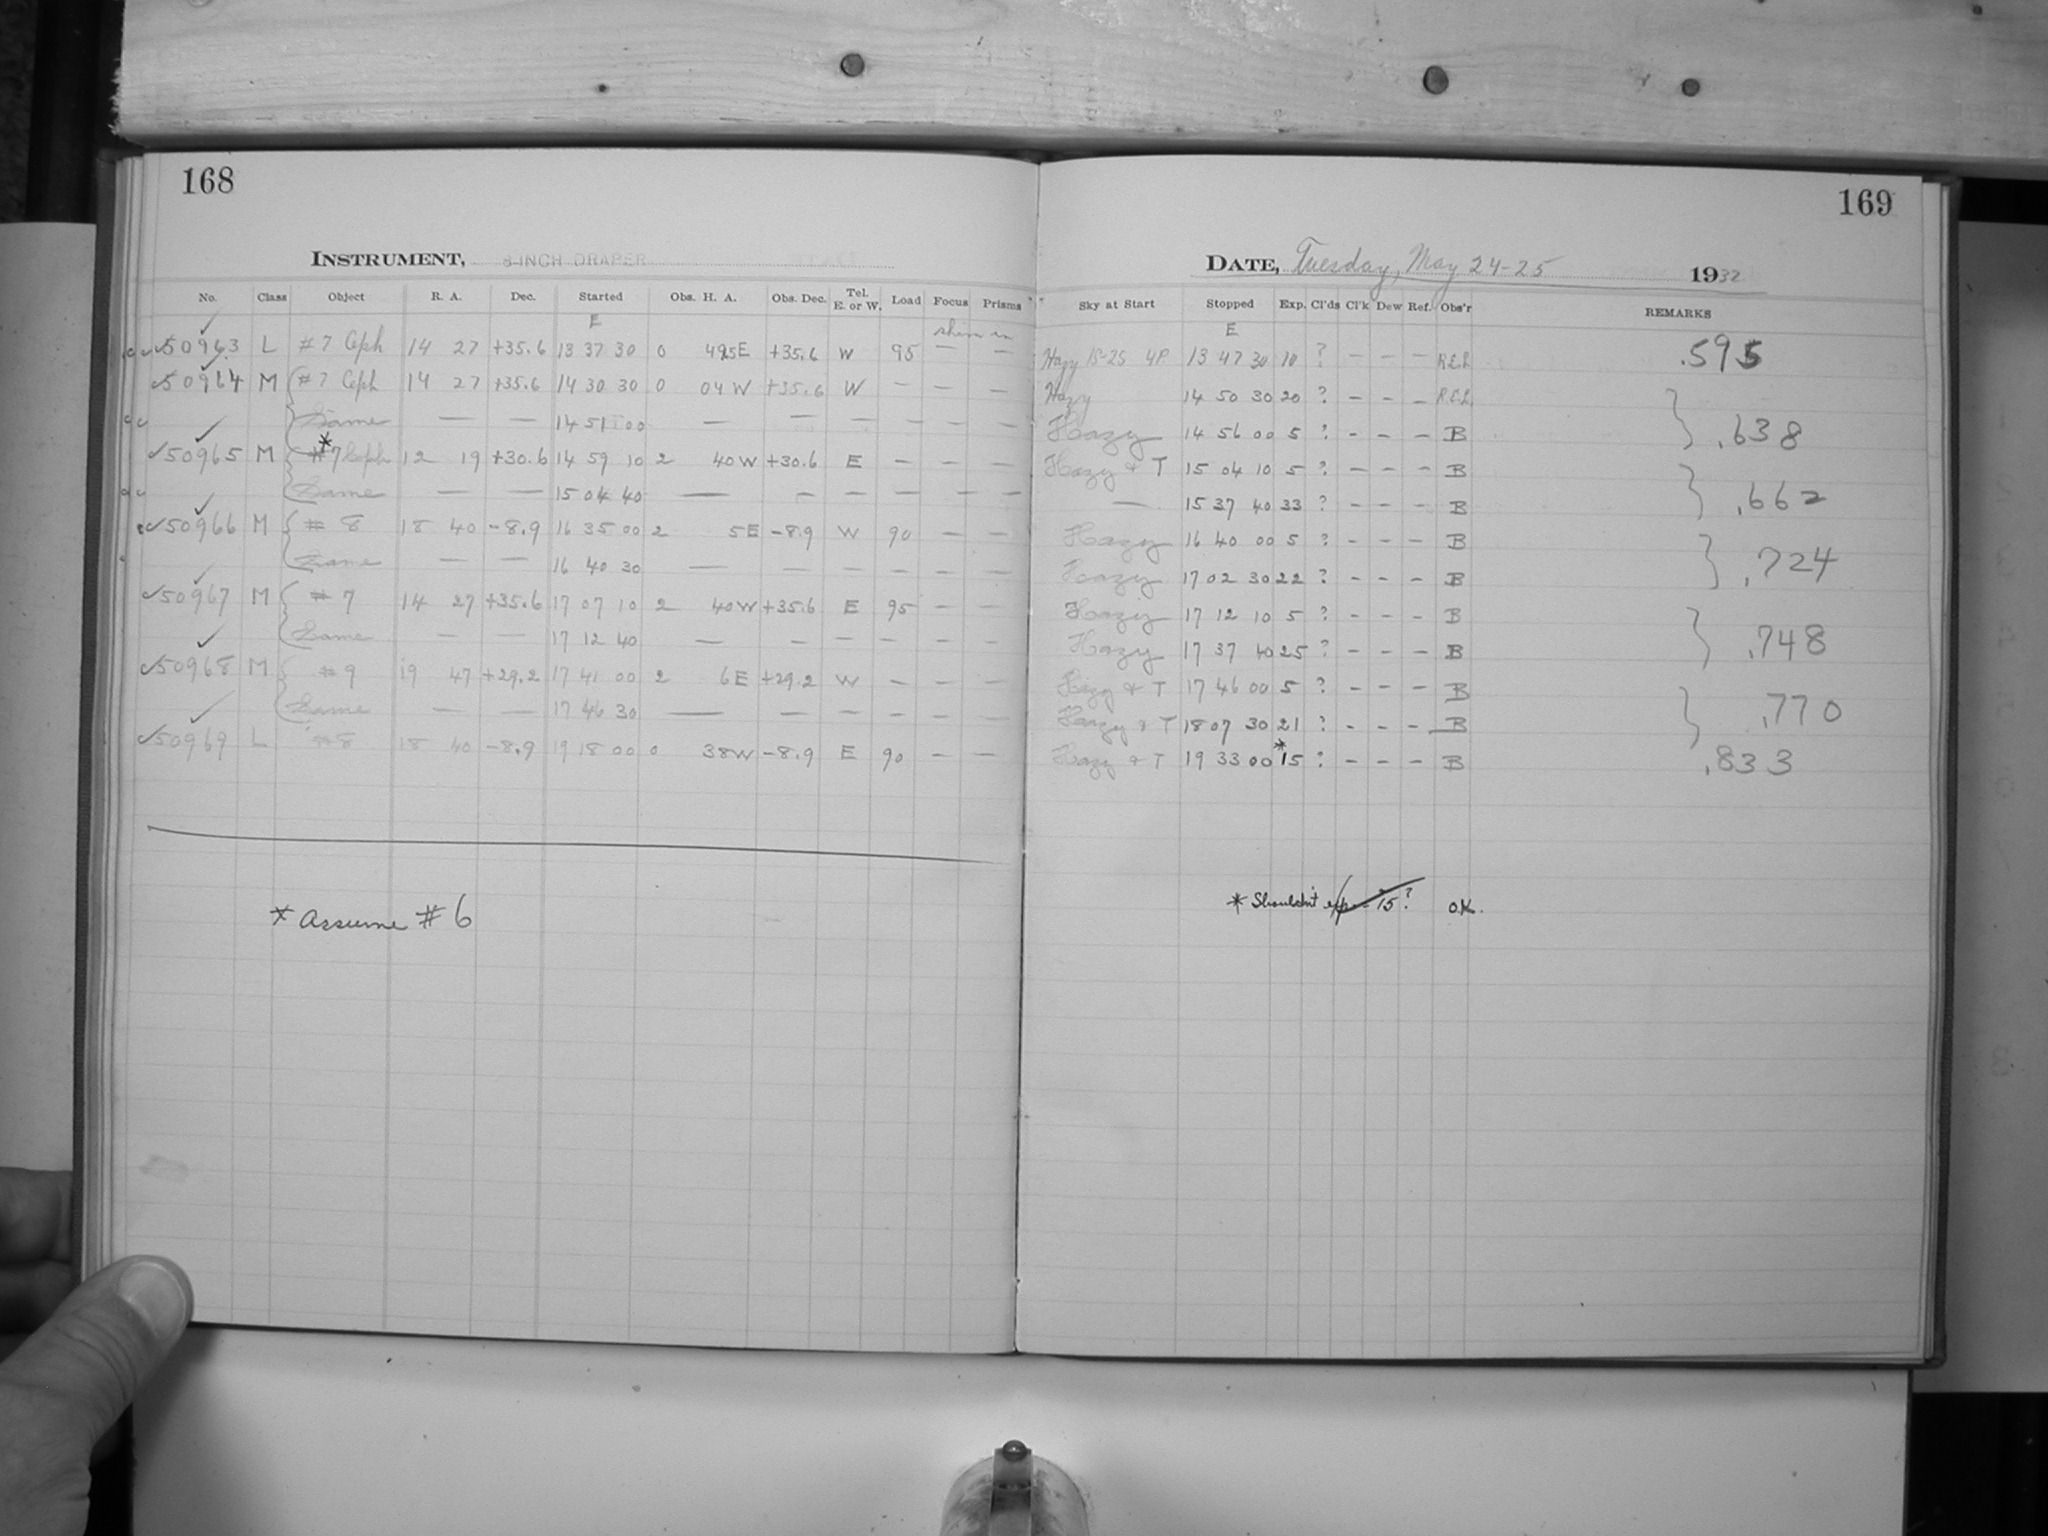 168
INSTRUMENT, 8-INCH DRAPER
No. Class Object R. A. Dec. Started Obs. H. A. Obs. Dec. Tel. E. or W. Load Focus Prisms
E shim in
50963 L #7 Ceph 14 27 +35.6 13 37 30 0 49.5E +35.6 W 95 — —
50964 M #7 Ceph 14 27 +35.6 14 30 30 0 04 W +35.6 W — — —
Same — — 14 51 00 — — — — — —
50965 M *#7 Ceph 12 19 +30.6 14 59 10 2 40 W +30.6 E — — —
Same — — 15 04 40 — — — — — —
50966 M # 8 18 40 -8.9 16 35 00 2 5 E -8.9 W 90 — —
Same — — 16 40 30 — — — — — —
50967 M # 7 14 27 +35.6 17 07 10 2 40 W +35.6 E 95 — —
Same — — 17 12 40 — — — — — —
50968 M #9 19 47 +29.2 17 41 00 2 6 E +29.2 W — — —
Same — — 17 46 30 — — — — — —
50969 L #8 18 40 -8.9 19 18 00 0 38 W -8.9 E 90 — —
* Assume # 6
169
DATE, Tuesday, May 24-25 1932
Sky at Start Stopped Exp. Cl'ds Cl'k Dew Ref. Obs'r REMARKS
E
Hazy 15-25 4P. 13 47 30 10 ? — — — R.E.L. .595
Hazy 14 50 30 20 ? — — — R.E.L.
Hazy 14 56 00 5 ? - - - B } .638
Hazy & T 15 04 10 5 ? - - - B
— 15 37 40 33 ? - - - B } .662
Hazy 16 40 00 5 ? - - - B
Hazy 17 02 30 22 ? - - - B } .724
Hazy 17 12 10 5 ? - - - B
Hazy 17 37 40 25 ? - - - B } .748
Hazy & T 17 46 00 5 ? - - - B
Hazy & T 18 07 30 21 ? - - - B } .770
Hazy & T 19 33 00 *15 ? - - - B .833
* Shouldn't 15? O.K.